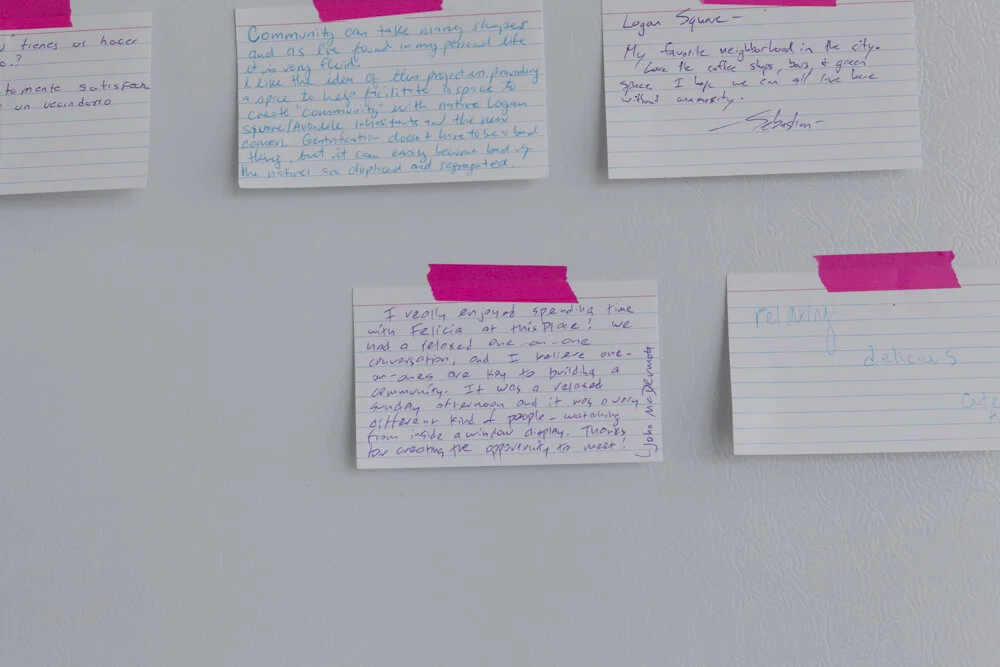 tienes al hacer
o..?
tamente satisfech
un vecindario
Community can take many shapes
and as I've found in my personal life
it is very fluid.
I like the idea of this project in providing
a space to help facilitate a space to
create "community" with native Logan
Square/Avondale inhabitants and the new
comers. Gentrification doesn't have to be a bad
thing, but it can easily become bad if
the natives are displaced and segregated.
Logan Square –
My favorite neighborhood in the city.
Love the coffee shops, bars, & green
space. I hope we can all live here
without animosity.
Sebastian –
I really enjoyed spending time
with Felicia at this place! We
had a relaxed one-on-one
conversation, and I believe one-
on-ones are key to building a
community. It was a relaxed
Sunday afternoon and it was a very
different kind of people-watching
from inside a window display. Thanks
for creating the opportunity to meet!
John McDermott
relaxing
delicious
cute